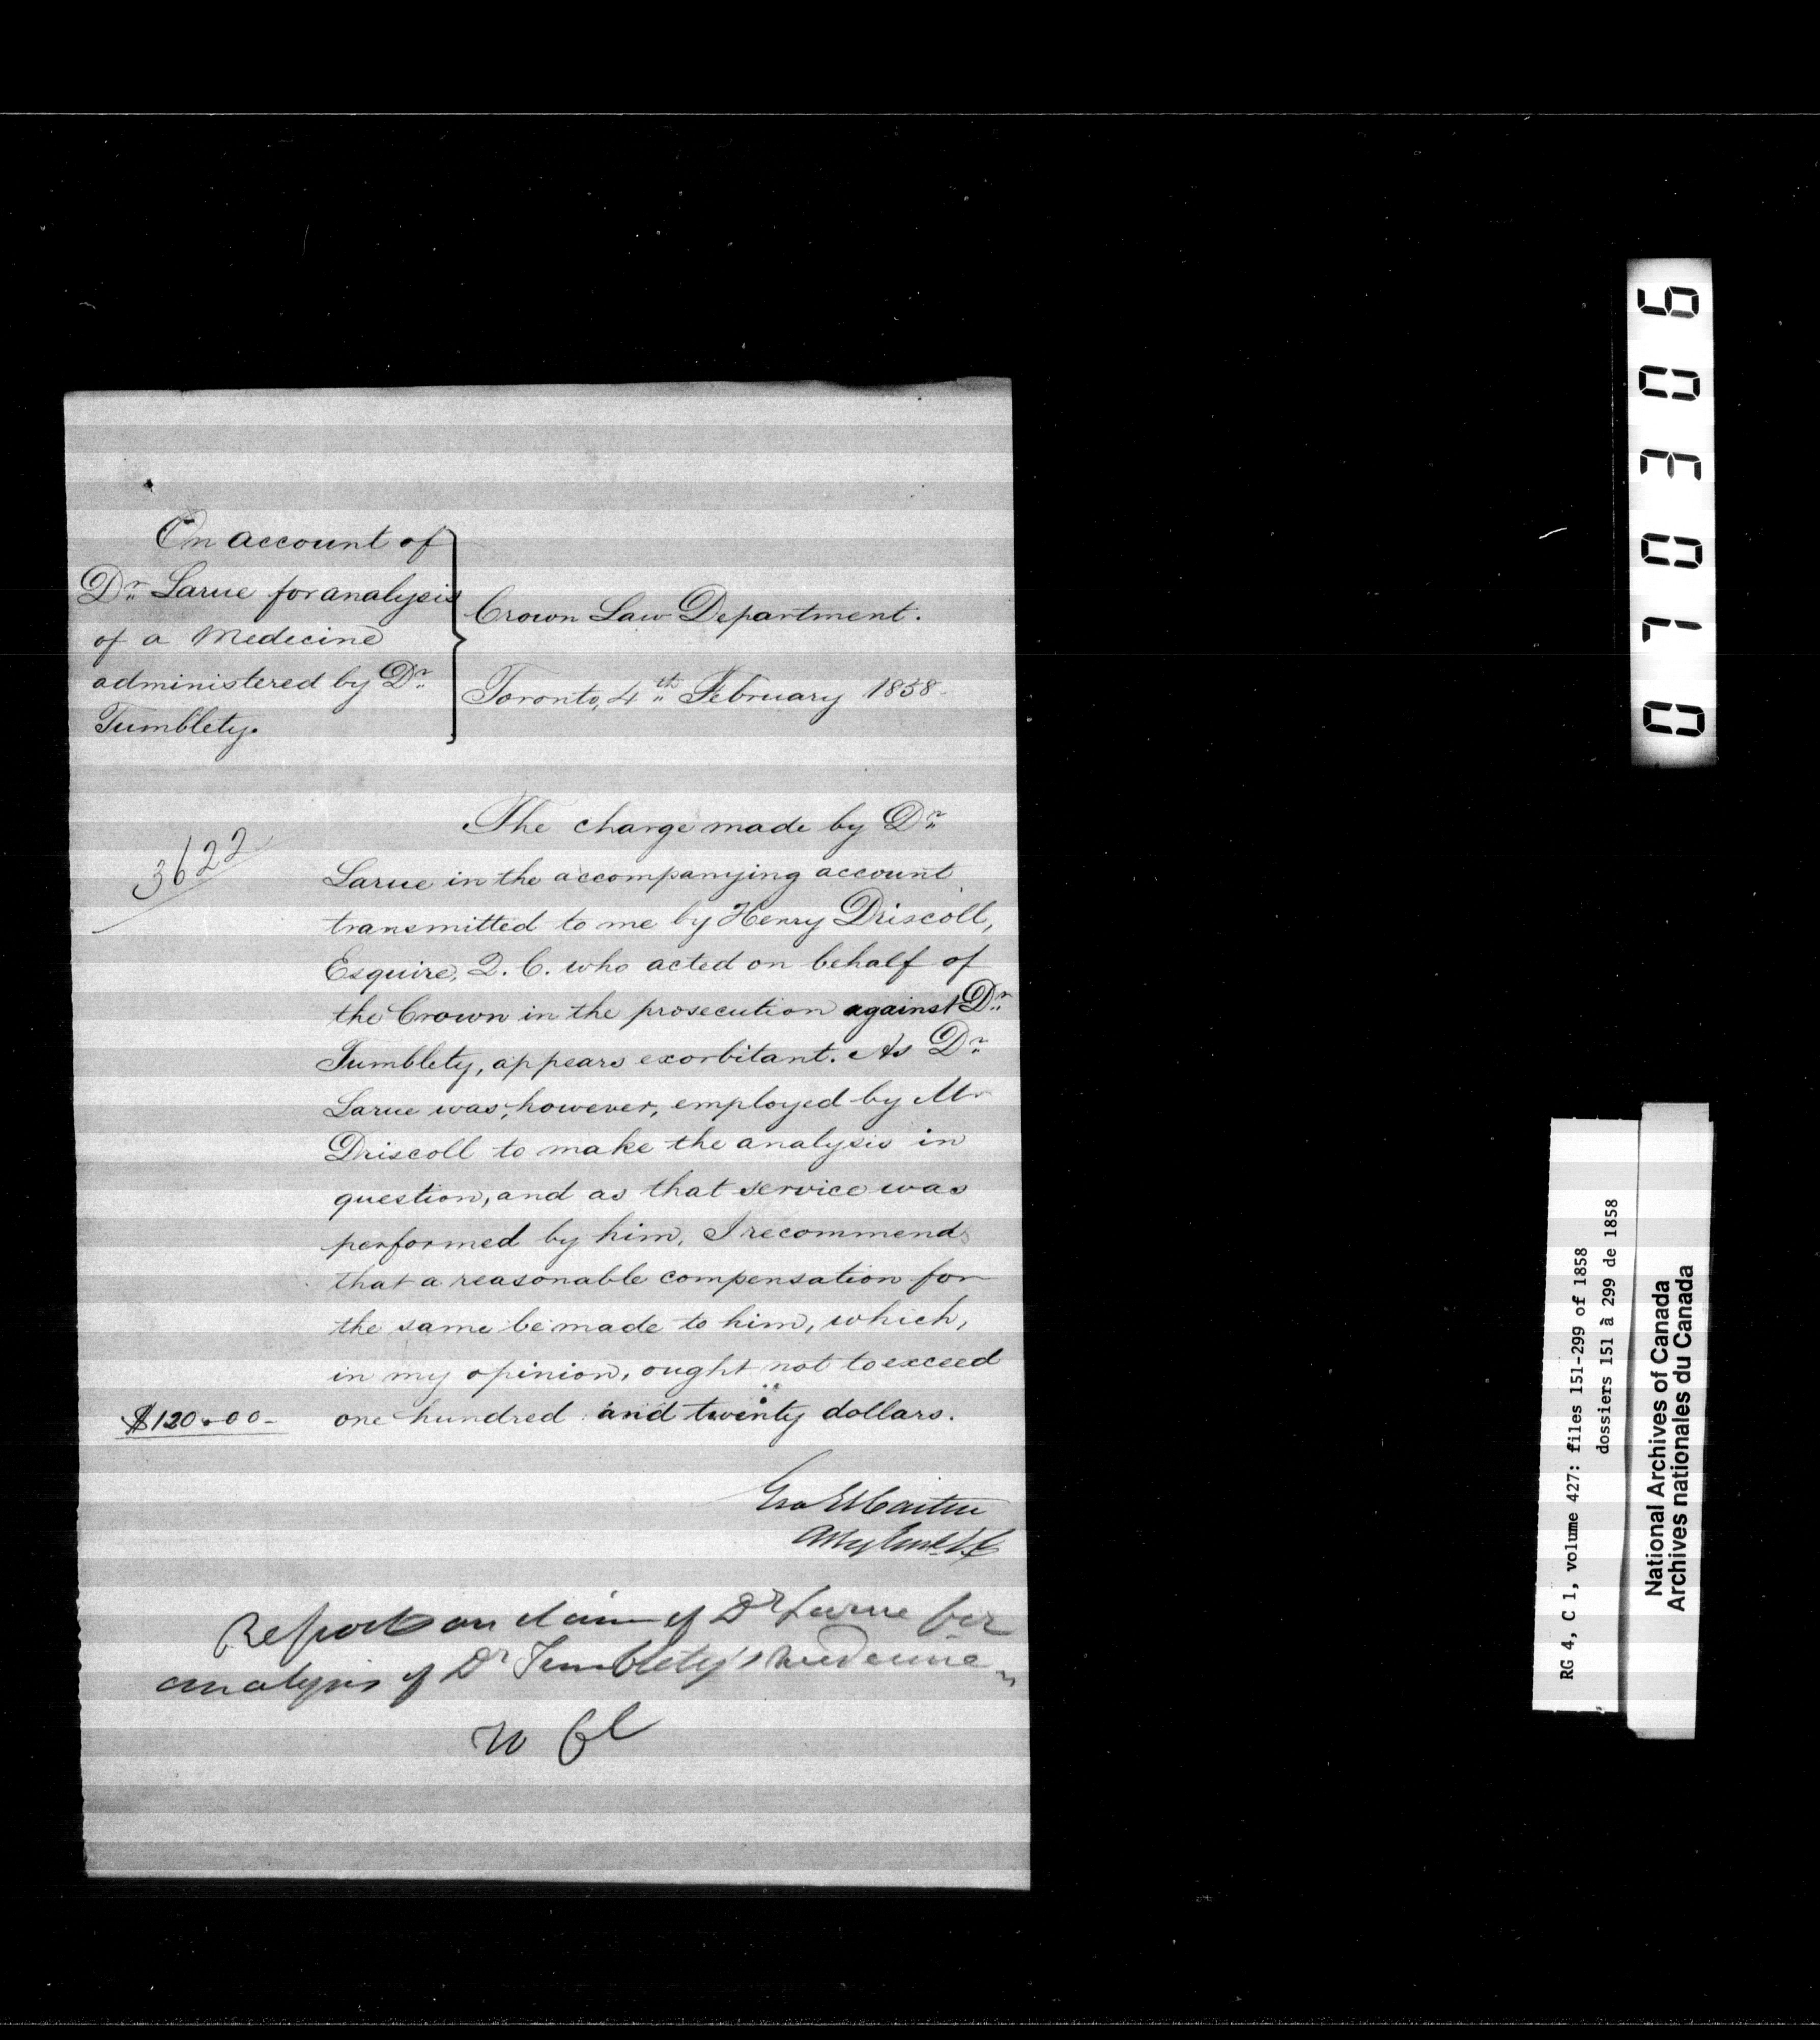 On account of
Dr Larue for analysis
of a Medecine
administered by Dr
Tumblety.
Crown Law Department.
Toronto, 4th February 1858.
3622
The charge made by Dr
Larue in the accompanying account
transmitted to me by Henry Driscoll,
Esquire, Q. C. who acted on behalf of
the Crown in the prosecution against Dr
Tumblety, appears exorbitant. As Dr
Larue was, however, employed by Mr
Driscoll to make the analysis in
question, and as that service was
performed by him, I recommend
that a reasonable compensation for
the same be made to him, which,
in my opinion, ought not to exceed
$120.00- one hundred and twenty dollars.
Geo Et Cartier
Atty Genl. L.C
Report on claim of Dr Larue for
analysis of Dr Tumblety's medecine
0710306
RG 4, C 1, volume 427: files 151-299 of 1858
dossiers 151 à 299 de 1858
National Archives of Canada
Archives nationales du Canada